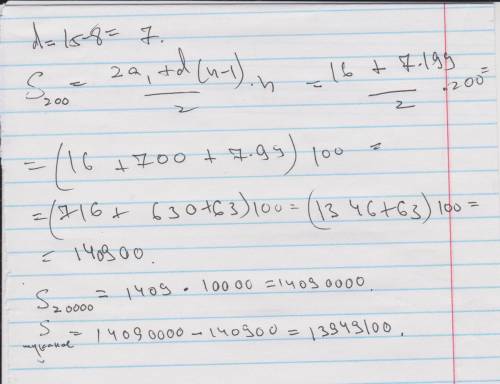 d = 15-8 = 7.
S₂₀₀ = (2a₁ + d(n-1))/2 · n = (16 + 7·199)/2 · 200 =
= (16 + 700 + 7·99) 100 =
= (716 + 630+63) 100 = (1346+63) 100 =
= 140900.
S₂₀₀₀₀ = 1409 · 10000 = 14090000.
S = 14090000 - 140900 = 13949100.